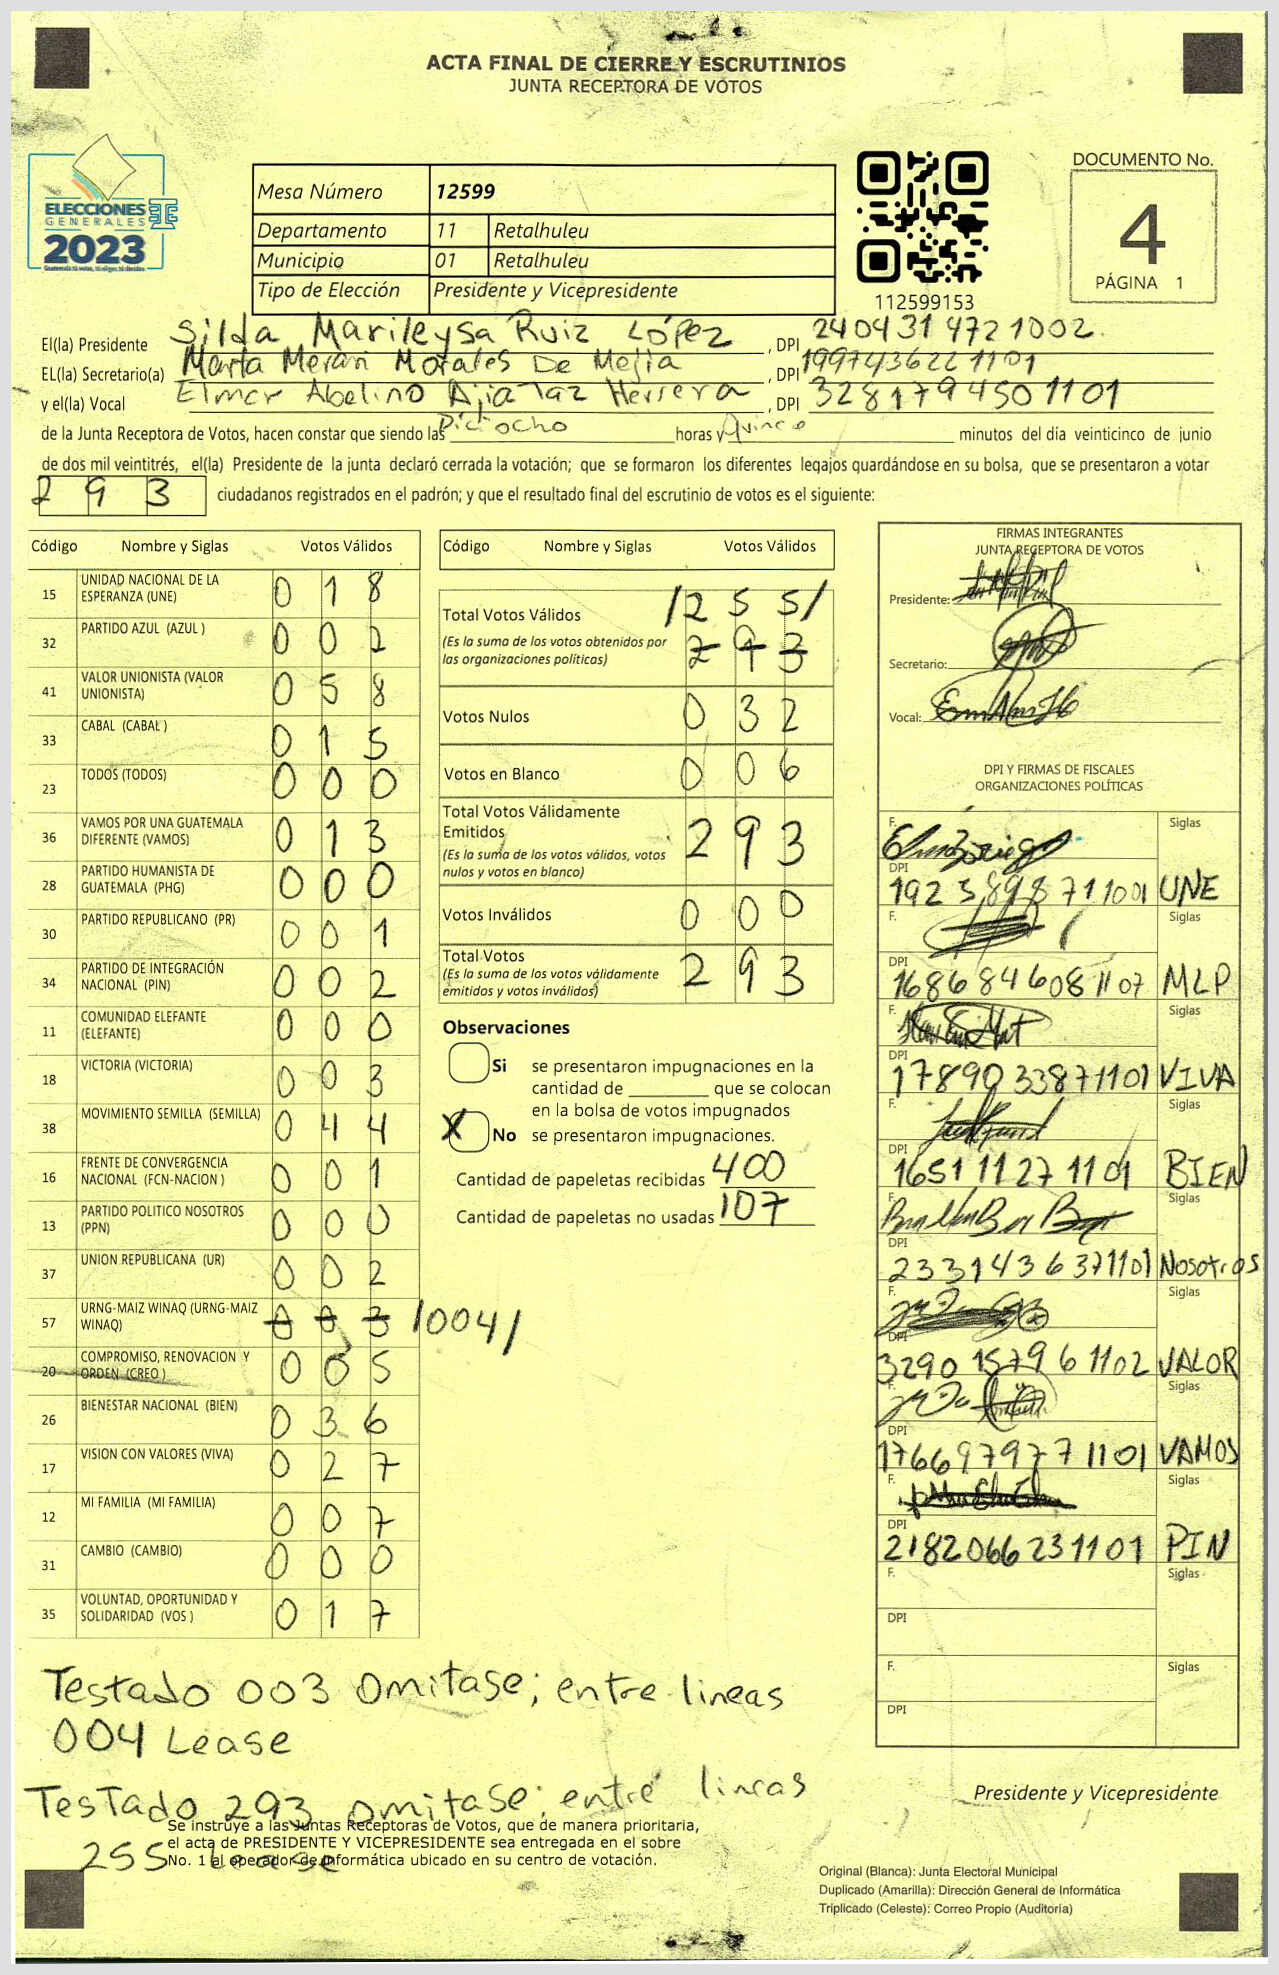 ACTA FINAL DE CIERRE Y ESCRUTINIOS
JUNTA RECEPTORA DE VOTOS
ELECCIONES
GENERALES
2023
Guatemala tú votas, tú eliges, tú decides
Mesa Número 12599
Departamento 11 Retalhuleu
Municipio 01 Retalhuleu
Tipo de Elección Presidente y Vicepresidente
112599153
DOCUMENTO No.
4
PÁGINA 1
El(la) Presidente Silda Marileysa Ruiz López , DPI 2404314721002.
EL(la) Secretario(a) Marta Merari Morales De Mejia , DPI 1997436221101
y el(la) Vocal Elmer Abelino Ajiataz Herrera , DPI 3281794501101
de la Junta Receptora de Votos, hacen constar que siendo las Dieciocho horas y Quince minutos del día veinticinco de junio
de dos mil veintitrés, el(la) Presidente de la junta declaró cerrada la votación; que se formaron los diferentes legajos guardándose en su bolsa, que se presentaron a votar
293 ciudadanos registrados en el padrón; y que el resultado final del escrutinio de votos es el siguiente:
Código Nombre y Siglas Votos Válidos
15 UNIDAD NACIONAL DE LA ESPERANZA (UNE) 0 1 8
32 PARTIDO AZUL (AZUL ) 0 0 2
41 VALOR UNIONISTA (VALOR UNIONISTA) 0 5 8
33 CABAL (CABAL ) 0 1 5
23 TODOS (TODOS) 0 0 0
36 VAMOS POR UNA GUATEMALA DIFERENTE (VAMOS) 0 1 3
28 PARTIDO HUMANISTA DE GUATEMALA (PHG) 0 0 0
30 PARTIDO REPUBLICANO (PR) 0 0 1
34 PARTIDO DE INTEGRACIÓN NACIONAL (PIN) 0 0 2
11 COMUNIDAD ELEFANTE (ELEFANTE) 0 0 0
18 VICTORIA (VICTORIA) 0 0 3
38 MOVIMIENTO SEMILLA (SEMILLA) 0 4 4
16 FRENTE DE CONVERGENCIA NACIONAL (FCN-NACION ) 0 0 1
13 PARTIDO POLITICO NOSOTROS (PPN) 0 0 0
37 UNION REPUBLICANA (UR) 0 0 2
57 URNG-MAIZ WINAQ (URNG-MAIZ WINAQ) 0 0 3 /004/
20 COMPROMISO, RENOVACION Y ORDEN (CREO ) 0 0 5
26 BIENESTAR NACIONAL (BIEN) 0 3 6
17 VISION CON VALORES (VIVA) 0 2 7
12 MI FAMILIA (MI FAMILIA) 0 0 7
31 CAMBIO (CAMBIO) 0 0 0
35 VOLUNTAD, OPORTUNIDAD Y SOLIDARIDAD (VOS ) 0 1 7
Código Nombre y Siglas Votos Válidos
Total Votos Válidos /2 5 5/
(Es la suma de los votos obtenidos por las organizaciones políticas) 2 9 3
Votos Nulos 0 3 2
Votos en Blanco 0 0 6
Total Votos Válidamente Emitidos 2 9 3
(Es la suma de los votos válidos, votos nulos y votos en blanco)
Votos Inválidos 0 0 0
Total Votos 2 9 3
(Es la suma de los votos válidamente emitidos y votos inválidos)
Observaciones
Si se presentaron impugnaciones en la
cantidad de ________ que se colocan
en la bolsa de votos impugnados
X No se presentaron impugnaciones.
Cantidad de papeletas recibidas 400
Cantidad de papeletas no usadas 107
FIRMAS INTEGRANTES
JUNTA RECEPTORA DE VOTOS
Presidente:
Secretario:
Vocal:
DPI Y FIRMAS DE FISCALES
ORGANIZACIONES POLÍTICAS
F. Siglas
DPI 1923898711001 UNE
F. Siglas
DPI 1686846081107 MLP
F. Siglas
DPI 1789033871101 VIVA
F. Siglas
DPI 165111271101 BIEN
F. Siglas
DPI 2331436371101 Nosotros
F. Siglas
DPI 3290157961102 VALOR
F. Siglas
DPI 1766979771101 VAMOS
F. Siglas
DPI 2182066231101 PIN
F. Siglas
DPI
F. Siglas
DPI
Testado 003 Omitase; entre lineas
004 Lease
Testado 293 omitase; entre lineas
255 lease
Se instruye a las Juntas Receptoras de Votos, que de manera prioritaria,
el acta de PRESIDENTE Y VICEPRESIDENTE sea entregada en el sobre
No. 1 al operador de informática ubicado en su centro de votación.
Presidente y Vicepresidente
Original (Blanca): Junta Electoral Municipal
Duplicado (Amarilla): Dirección General de Informática
Triplicado (Celeste): Correo Propio (Auditoría)